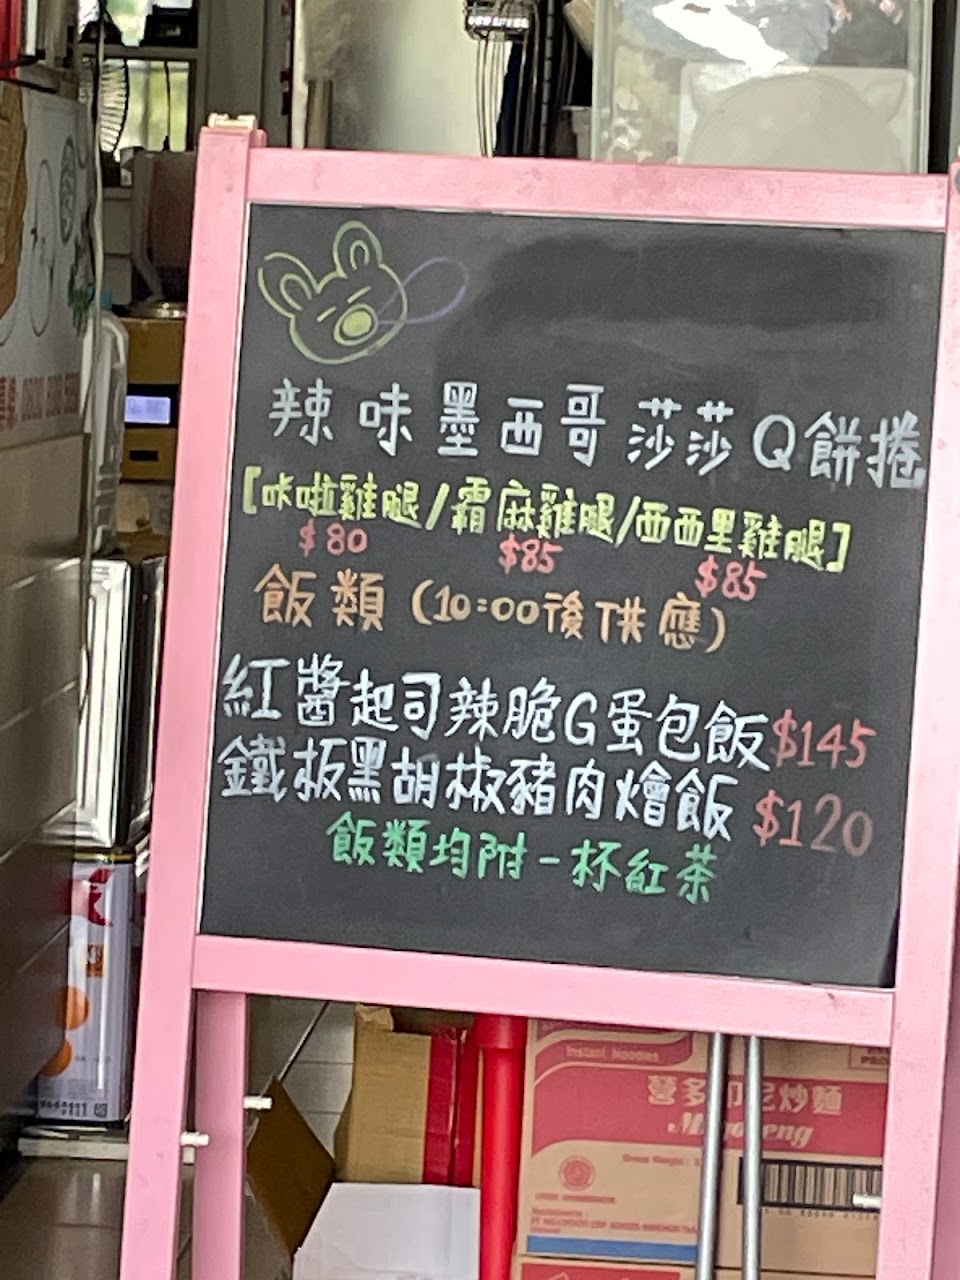 辣味墨西哥莎莎Q餅捲
[咔啦雞腿/霸麻雞腿/西西里雞腿]
$80 $85 $85
飯類(10:00後供應)
紅醬起司辣脆G蛋包飯$145
鐵板黑胡椒豬肉燴飯 $120
飯類均附一杯紅茶
Instant Noodles
營多印尼炒麵
Migoreng